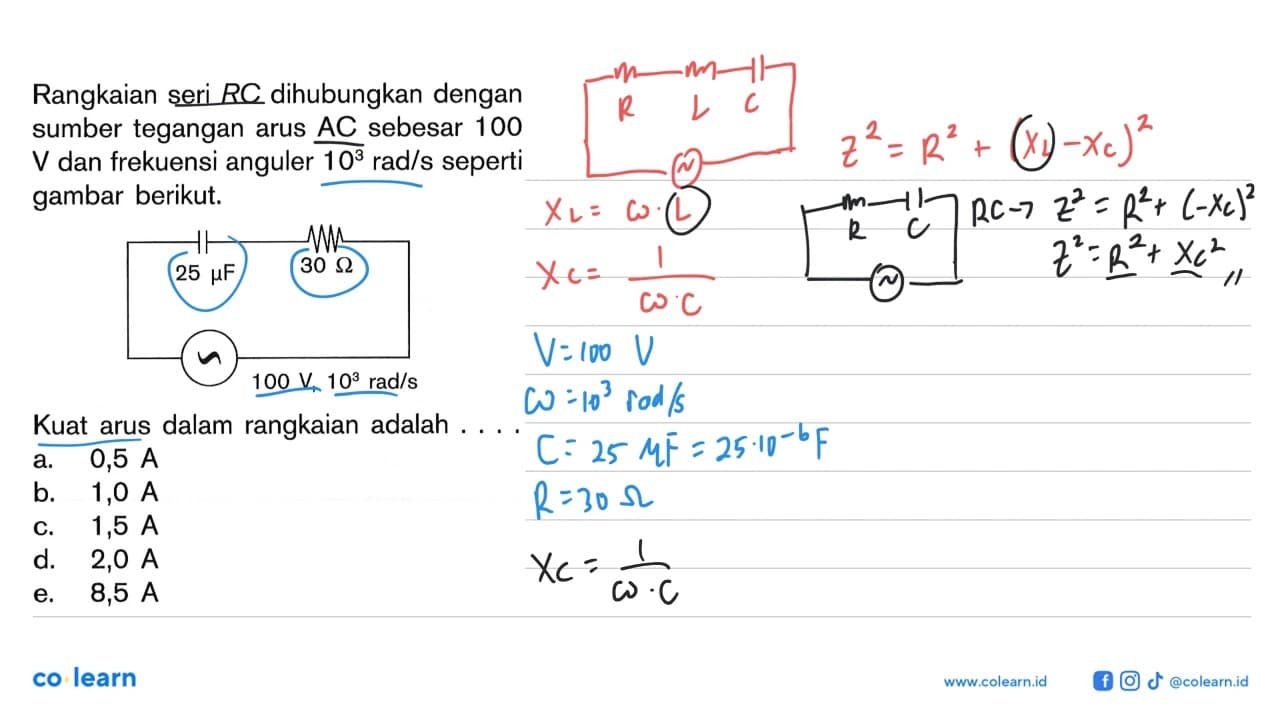 Rangkaian seri RC dihubungkan dengan
sumber tegangan arus AC sebesar 100
V dan frekuensi anguler 10³ rad/s seperti
gambar berikut.
25 μF
30 Ω
100 V, 10³ rad/s
Kuat arus dalam rangkaian adalah . . . .
a. 0,5 A
b. 1,0 A
c. 1,5 A
d. 2,0 A
e. 8,5 A
R L C
XL = ω·L
XC = 1/ω·C
Z² = R² + (XL - XC)²
R C
RC → Z² = R² + (-XC)²
Z² = R² + XC² //
V = 100 V
ω = 10³ rad/s
C = 25 μF = 25·10⁻⁶ F
R = 30 Ω
XC = 1/ω·C
co learn
www.colearn.id
@colearn.id